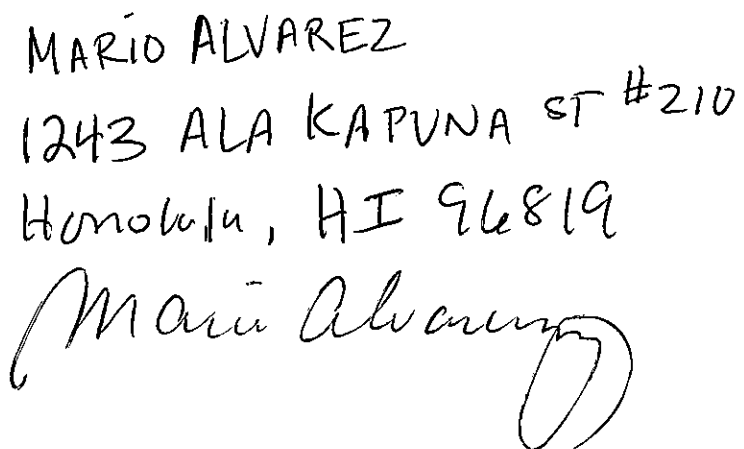 MARIO ALVAREZ
1243 ALA KAPUNA ST #210
Honolulu, HI 96819
Mario Alvarez